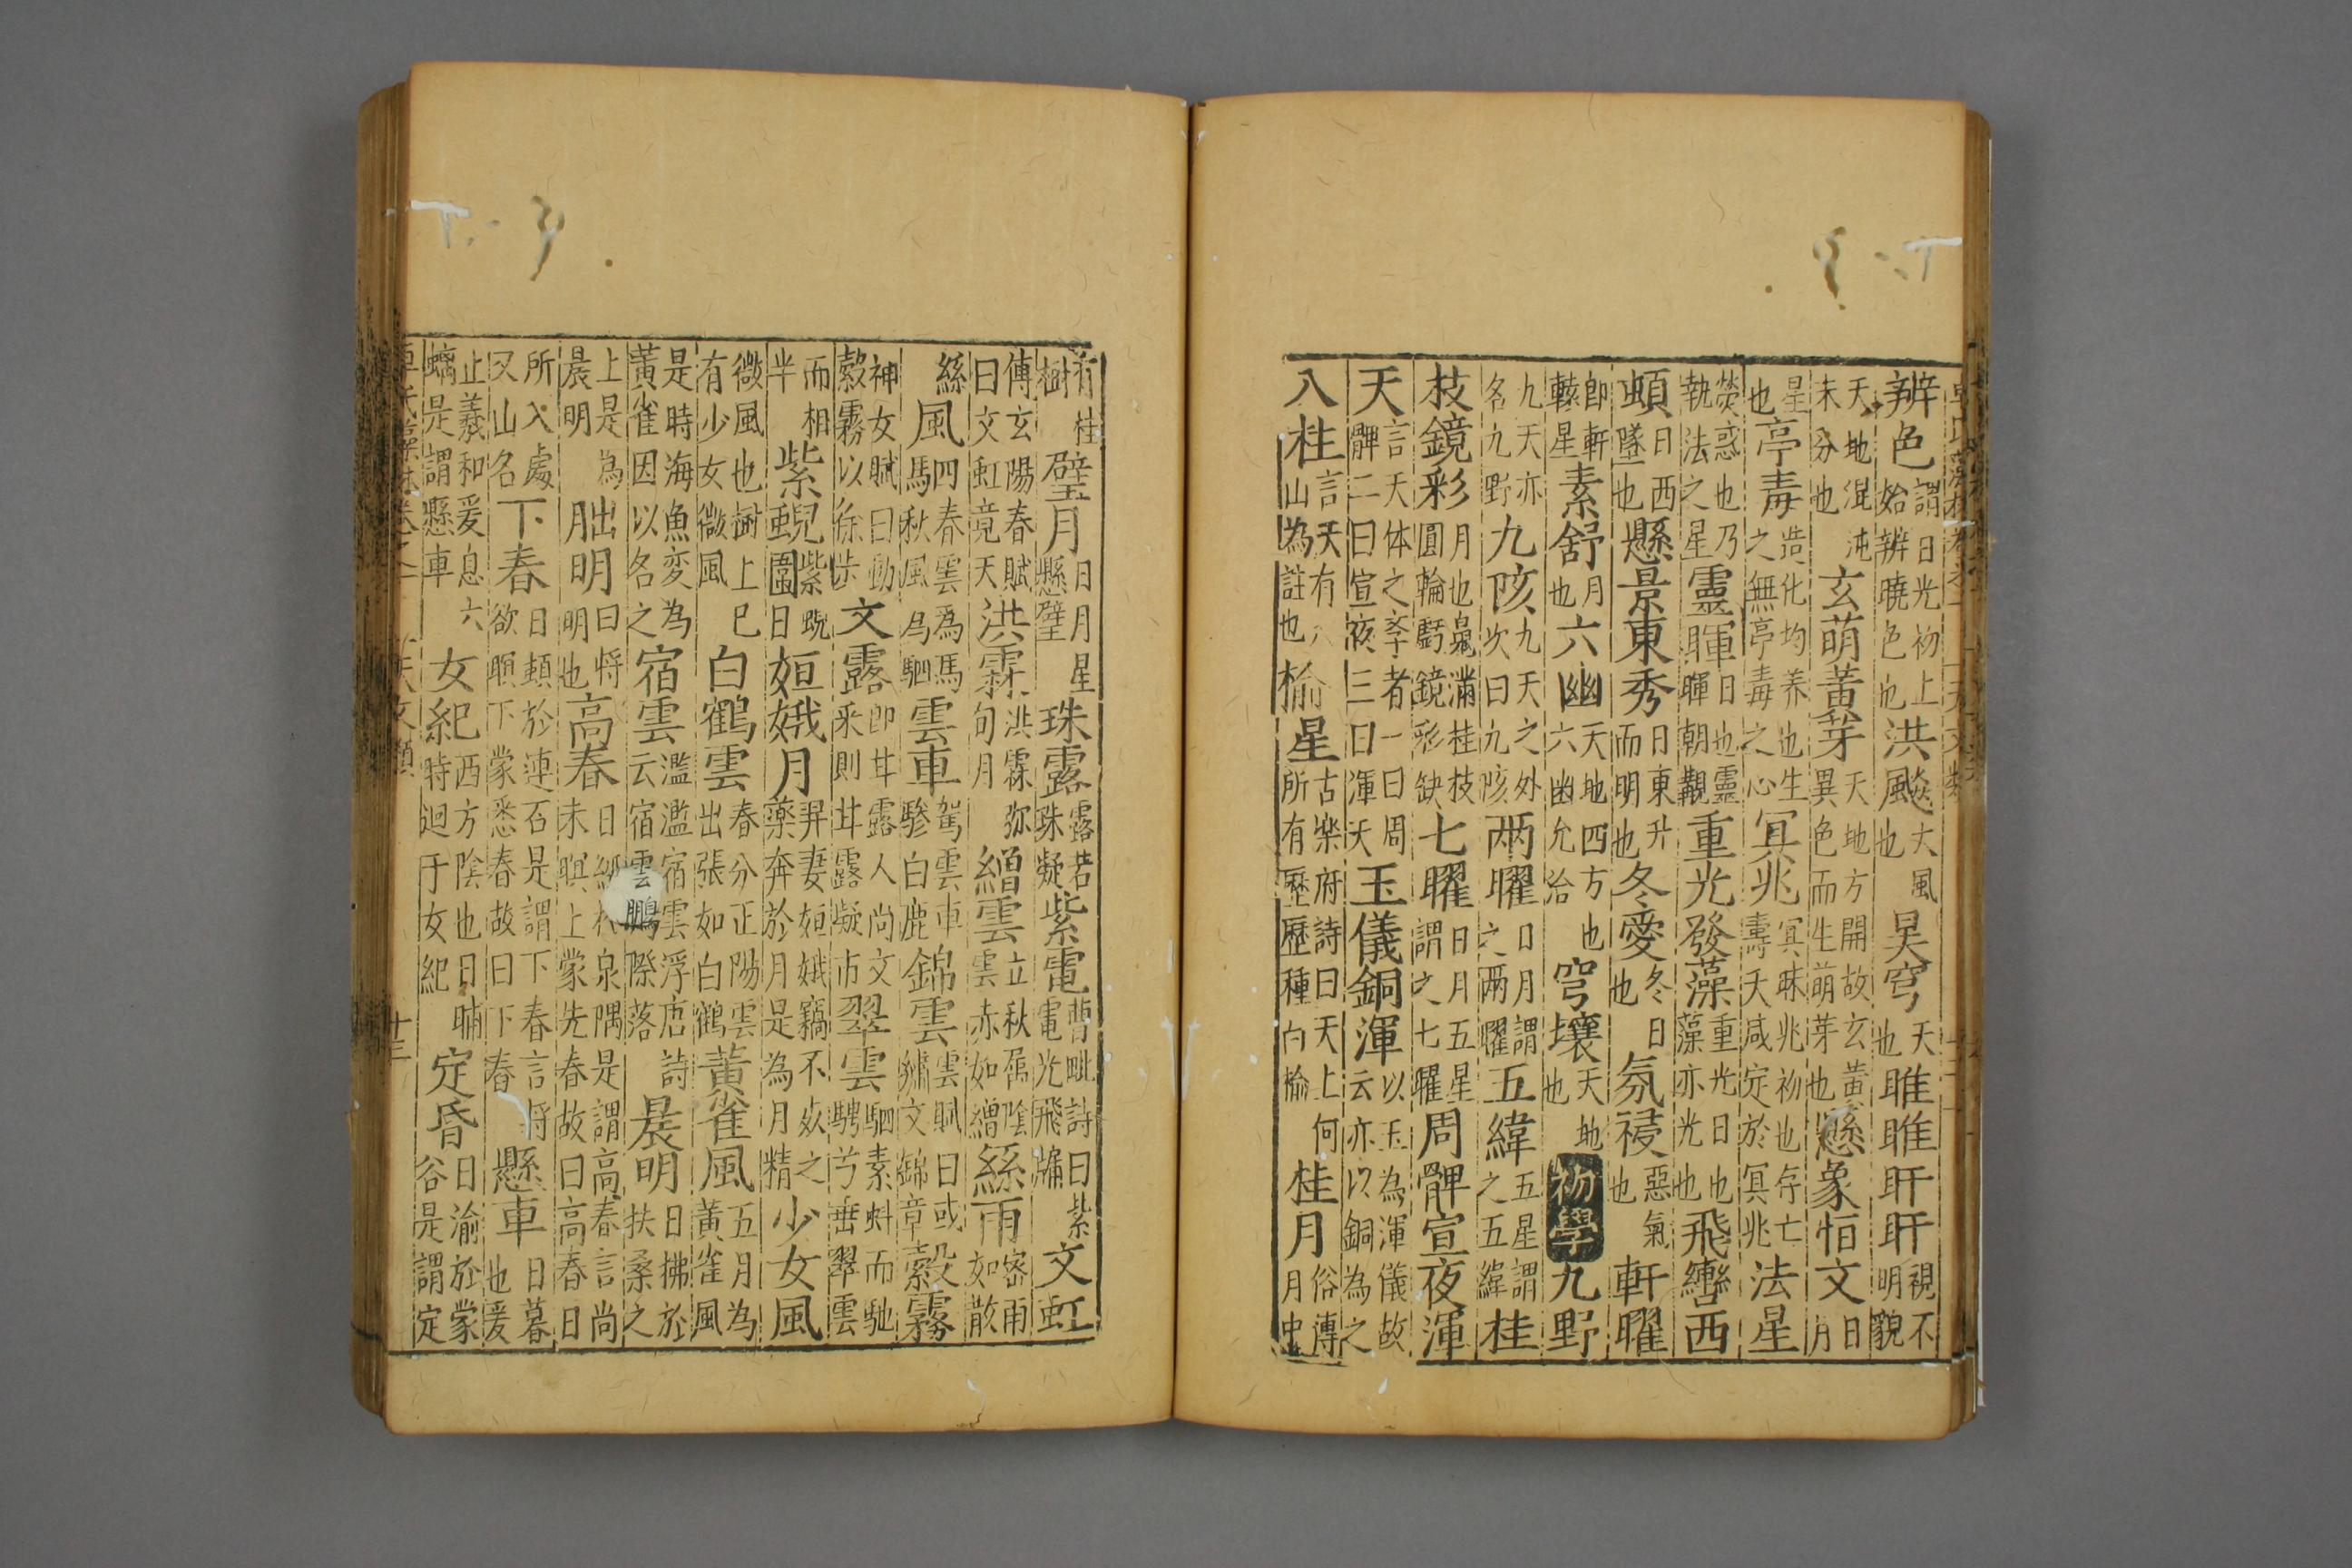 辨色謂日光初上始辨曉色也洪飈大風也昊穹天也睢睢盱盱視不明貌
天地混沌未分也玄萌黃芽天地方開故玄黃異色而生萌芽也懸象恒文日月
星也亭毒造化均养也生之無亭毒之心冥兆冥昧兆初也存亡壽夭咸定於冥兆法星
熒惑也乃執法之星靈暉日也靈暉朝觀重光發藻重光日也藻亦光也飛轡西
頓日西墜也懸景東秀日東升而明也冬愛冬日也氛祲惡氣也軒曜
即軒轅星素舒月也六幽天地四方也六幽允洽穹壤天地也初學九野
九天亦名九野九陔九天之外次曰九陔两曜日月謂之两曜五緯五星謂之五緯桂
枝鏡彩月也鳧滿桂枝圓輪虧鏡彩缺七曜日月五星謂之七曜周髀宣夜渾
天言天体之李者一曰周髀二曰宣夜三曰渾天玉儀銅渾以玉為渾儀故云亦以銅為之
八桂言天有八山為註也榆星古樂府詩曰天上何所有歷歷種白榆桂月俗傳月中
有桂樹璧月日月星懸璧珠露露若珠凝紫電曹毗詩曰紫電光飛牖文虹
傅玄陽春賦曰文虹竟天洪霖洪霖弥旬月繒雲立秋屬陰雲赤如繒絲雨密雨如散
絲風馬四春雲為馬秋風為駟雲車駕雲車驂白鹿錦雲雲賦曰或繡文錦章縠霧
神女賦曰動縠霧以徐步文露即甘露人尚文采則甘露凝市翠雲駟素虬而馳騁兮垂翠雲
而相半紫蜺圍紫蜺日姮娥月羿妻姮娥竊不死之藥奔於月是為月精少女風
微風也樹上巳有少女微風白鶴雲春分正陽雲出張如白鶴黃雀風五月為黃雀風
是時海魚変為黃雀因以名之宿雲濫濫宿雲浮唐詩云宿雲鵬際落晨明日拂於扶桑之
上是為晨明朏明曰将明也高舂日經於泉隅是謂高舂言尚未暝上蒙先舂故曰高舂日
所入處又山名下舂日頓於連石是謂下舂言将欲暝下蒙悉舂故曰下舂懸車日暮也爰
止羲和爰息六螭是謂懸車女紀西方陰也日晡時迴于女紀定昏日渝於蒙谷是謂定